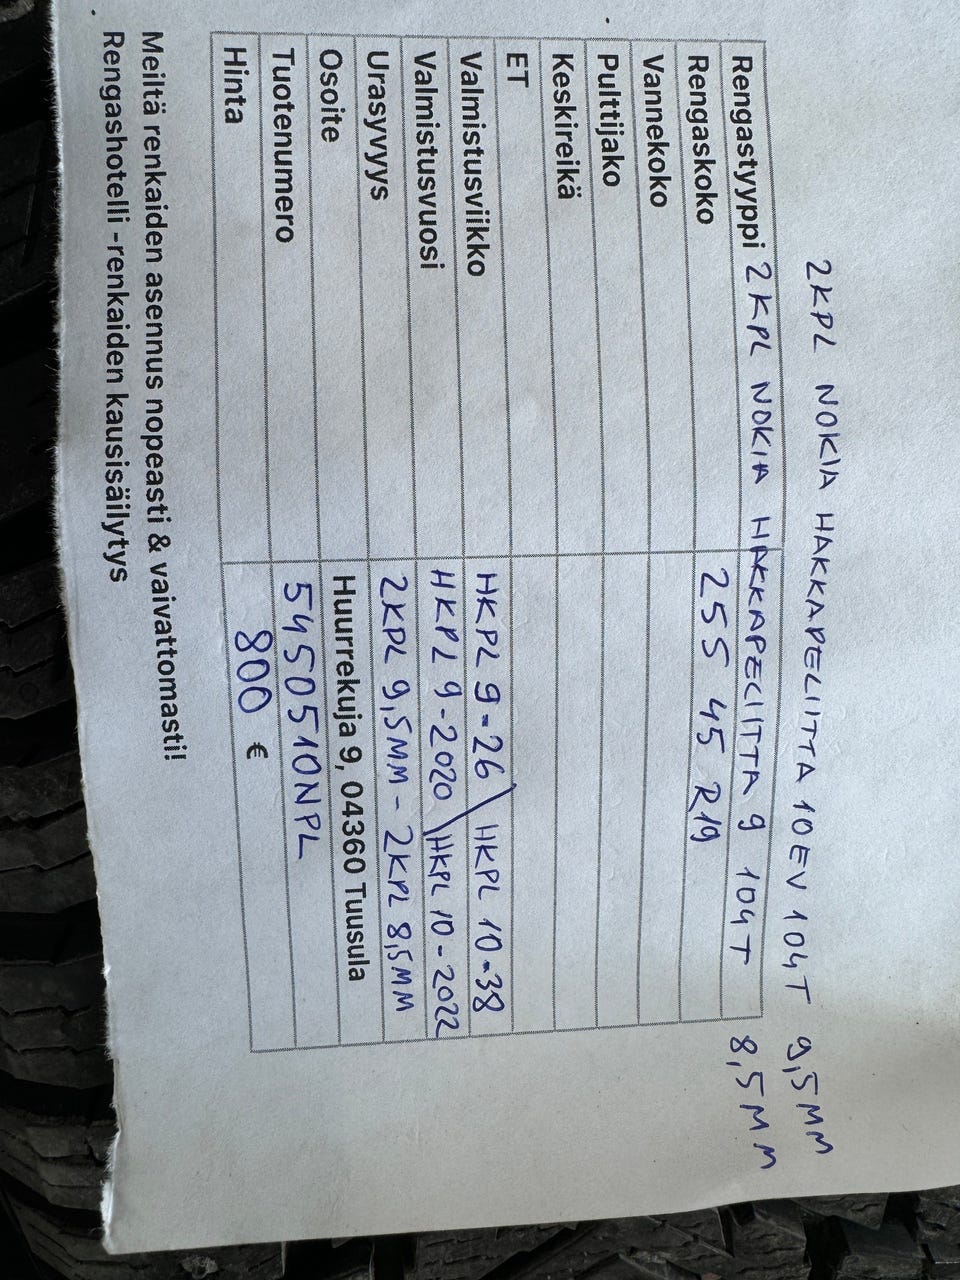 2KPL NOKIA HAKKAPELIITTA 10EV 104T 9,5MM
Rengastyyppi 2KPL NOKIA HAKKAPELIITTA 9 104T 8,5MM
Rengaskoko 255 45 R19
Vannekoko
Pulttijako
Keskireikä
ET
Valmistusviikko HKPL 9-26 \ HKPL 10-38
Valmistusvuosi HKPL 9-2020 \ HKPL 10-2022
Urasyvyys 2KPL 9,5MM - 2KPL 8,5MM
Osoite Huurrekuja 9, 04360 Tuusula
Tuotenumero 5450510NPL
Hinta 800 €
Meiltä renkaiden asennus nopeasti & vaivattomasti!
Rengashotelli -renkaiden kausisäilytys